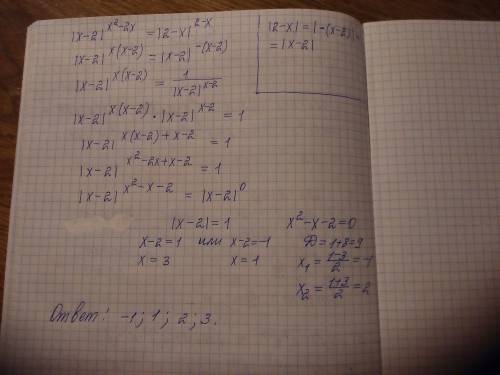 |x-2|^{x²-2x} = |2-x|^{2-x}
|x-2|^{x(x-2)} = |x-2|^{-(x-2)}
|x-2|^{x(x-2)} = 1/|x-2|^{x-2}
|x-2|^{x(x-2)} · |x-2|^{x-2} = 1
|x-2|^{x(x-2)+x-2} = 1
|x-2|^{x²-2x+x-2} = 1
|x-2|^{x²-x-2} = |x-2|^0
|x-2|=1
x-2=1 или x-2=-1
x=3 x=1
x²-x-2=0
Д=1+8=9
x₁ = (1-3)/2 = -1
x₂ = (1+3)/2 = 2
Ответ: -1; 1; 2; 3.
|2-x| = |-(x-2)| =
= |x-2|